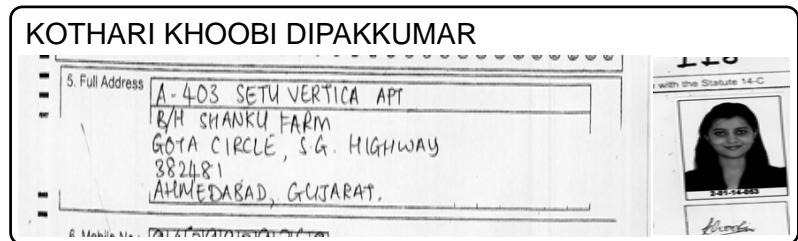 KOTHARI KHOOBI DIPAKKUMAR
5. Full Address
A-403 SETU VERTICA APT
B/H SHANKU FARM
GOTA CIRCLE, S.G. HIGHWAY
382481
AHMEDABAD, GUJARAT.
6. Mobile No.:
with the Statute 14-C
2-01-14-053
Khoobi